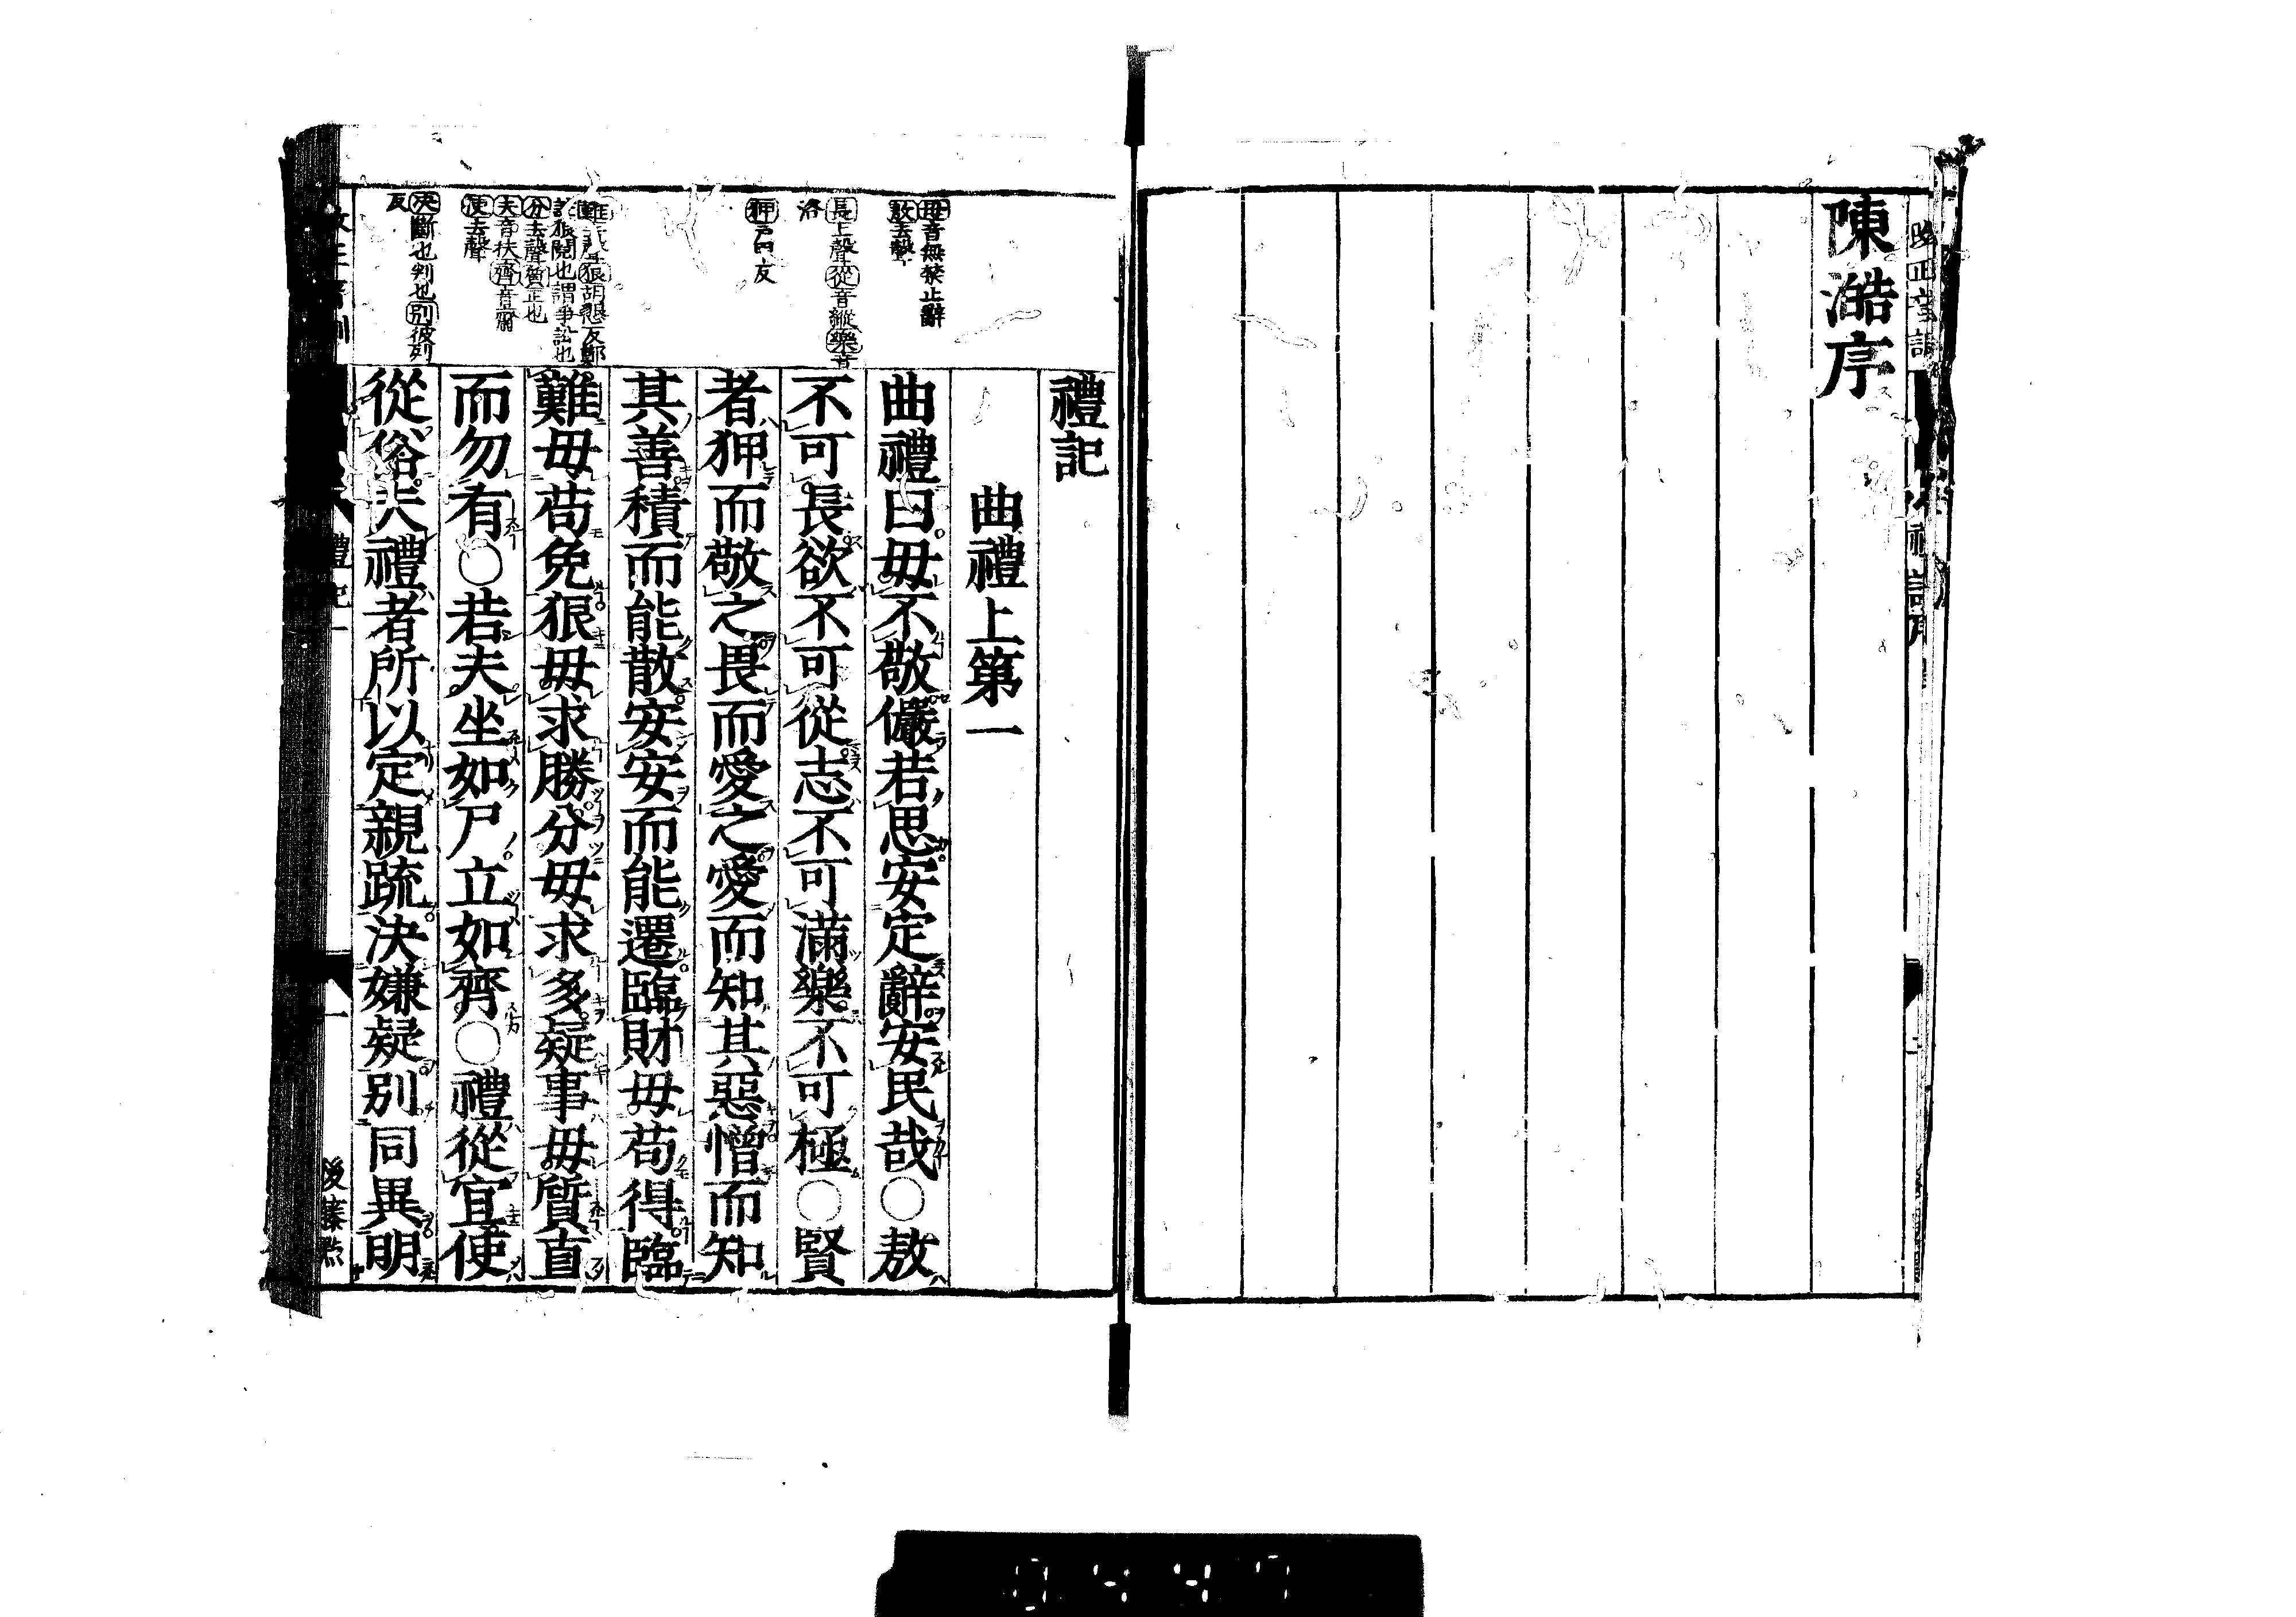 陳澔序
禮記
曲禮上第一
曲禮曰毋不敬儼若思安定辭安民哉○敖
不可長欲不可從志不可滿樂不可極○賢
者狎而敬之畏而愛之愛而知其惡憎而知
其善積而能散安安而能遷臨財毋苟得臨
難毋苟免狠毋求勝分毋求多疑事毋質直
而勿有○若夫坐如尸立如齊○禮從宜使
從俗夫禮者所以定親疏決嫌疑別同異明
毋音無禁止辭
敖去聲
長上聲從音縱樂音
洛
狎
反
難去聲狠胡懇反鄭
註狠鬩也謂爭訟也
分去聲質正也
夫音扶齊音齋
使去聲
決斷也判也別彼列
反
禮記
一
後藤點